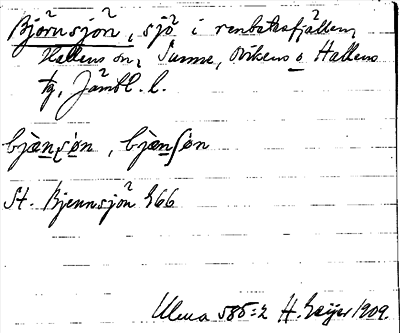 Björnsjön, sjö i renbetesfjällen,
Hallens sn, Sunne, Ovikens o Hallens
tg, Jämtl. l.
bjænʂøn, bjænʃøn
St. Bjennsjön 366
Ulma 585:2 H. Geijer 1909.